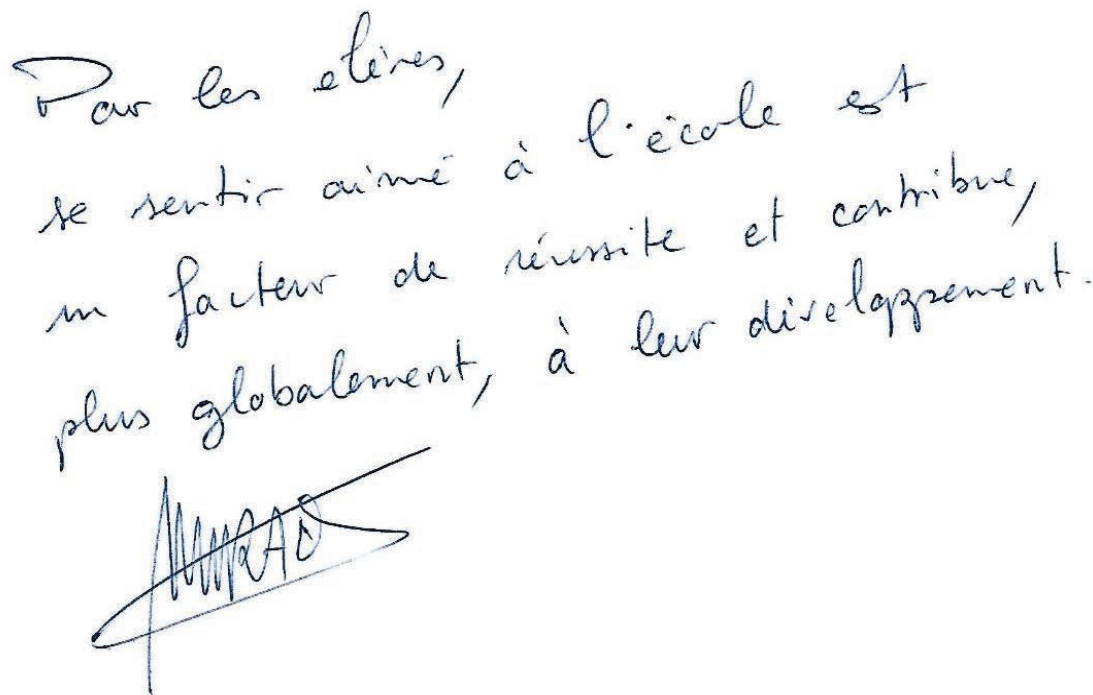 Pour les élèves,
se sentir aimé à l'école est
un facteur de réussite et contribue,
plus globalement, à leur développement.